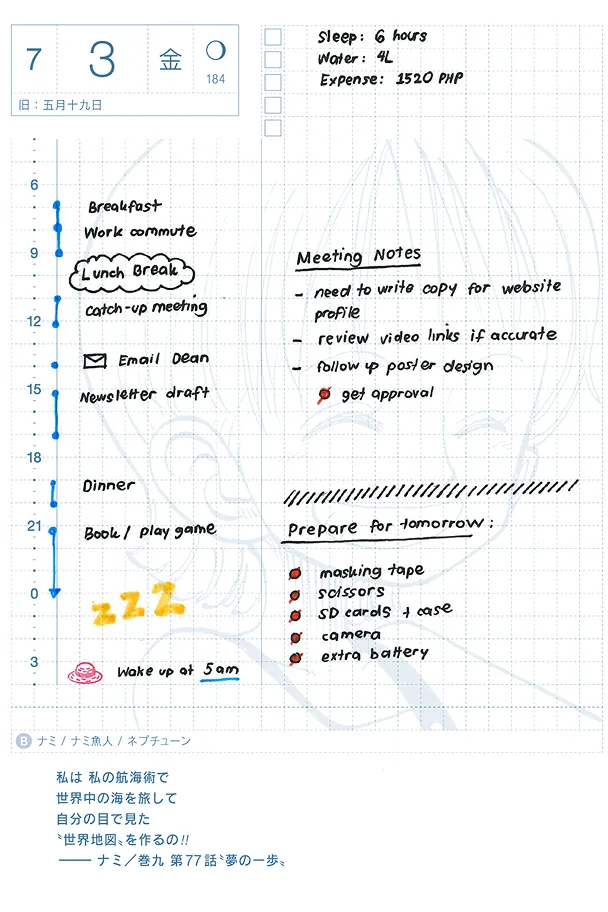 7 3 金
184
旧：五月十九日
Sleep: 6 hours
Water: 4L
Expense: 1520 PHP
6
Breakfast
Work commute
9
Lunch Break
catch-up meeting
12
Email Dean
15
Newsletter draft
18
Dinner
21
Book / play game
0
zzz
3
Wake up at 5am
Meeting Notes
- need to write copy for website
profile
- review video links if accurate
- follow up poster design
get approval
Prepare for tomorrow:
masking tape
scissors
SD cards + case
camera
extra battery
B ナミ / ナミ魚人 / ネプチューン
私は 私の航海術で
世界中の海を旅して
自分の目で見た
〝世界地図〟を作るの!!
── ナミ／巻九 第77話〝夢の一歩〟